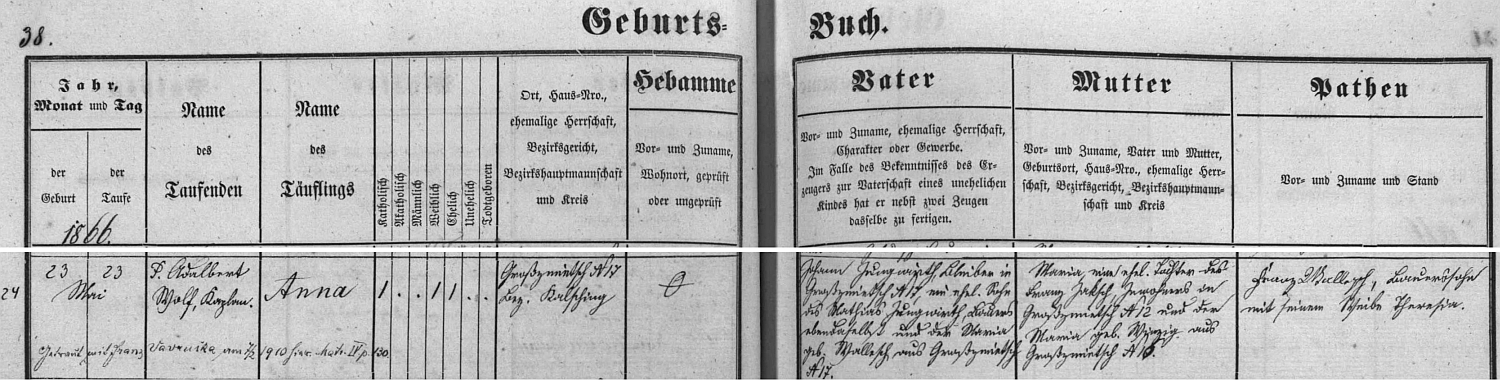 38.
Geburts-
Buch.
Jahr,
Monat und Tag
der
Geburt
der
Taufe
Name
des
Taufenden
Name
des
Täuflings
Katholisch
Akatholisch
Männlich
Weiblich
Ehelich
Unehelich
Todtgeboren
Ort, Haus-Nro.,
ehemalige Herrschaft,
Bezirksgericht,
Bezirkshauptmannschaft
und Kreis
Hebamme
Vor- und Zuname,
Wohnort, geprüft
oder ungeprüft
Vater
Vor- und Zuname, ehemalige Herrschaft,
Charakter oder Gewerbe.
Im Falle des Bekenntnisses des Er-
zeugers zur Vaterschaft eines unehelichen
Kindes hat er nebst zwei Zeugen
dasselbe zu fertigen.
Mutter
Vor- und Zuname, Vater und Mutter,
Geburtsort, Haus-Nro., ehemalige Herr-
schaft, Bezirksgericht, Bezirkshauptmann-
schaft und Kreis
Pathen
Vor- und Zuname und Stand
1866.
24
23
Mai
23
P. Adalbert
Wolf, Kaplan.
Anna
1 . . 1 1 . .
Großzmietsch N 17
Bez. Kalsching
Johann Jungwirth Bleiber in
Großzmietsch N 17, ein ehel. Sohn
des Mathias Jungwirth, Bauers
ebendaselbst und der Maria
geb. Wallesch aus Großzmietsch
N 17.
Maria, eine ehel. Tochter des
Franz Jaksch, Inwohners in
Großzmietsch N 12 und der
Maria geb. Winzig aus
Großzmietsch N 16.
Franz Wallesch, Bauerssohn
mit seinem Weibe Theresia.
Getraut mit Franz Vavruska am 7/2 1910 hier. Matr. IV p. 130.